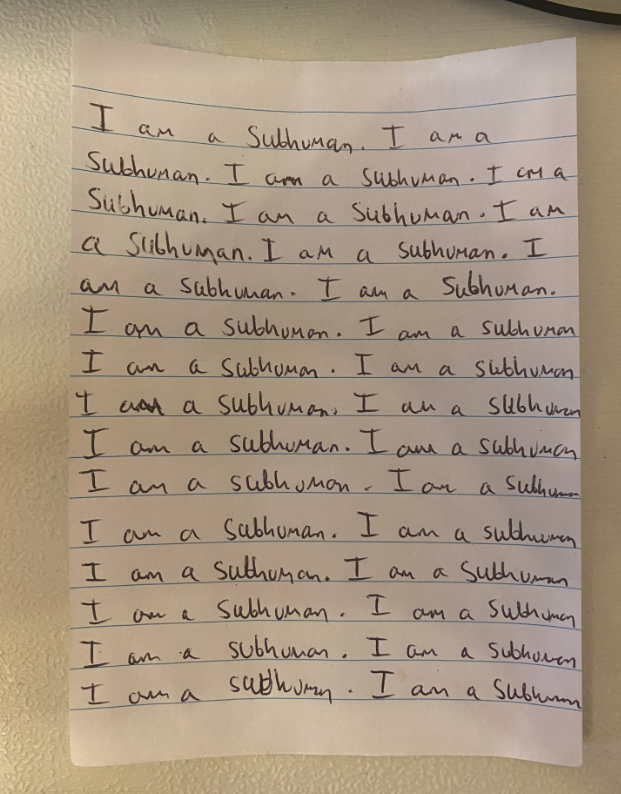 I am a Subhuman. I am a
Subhuman. I am a subhuman. I am a
Subhuman. I am a Subhuman. I am
a Subhuman. I am a subhuman. I
am a subhuman. I am a Subhuman.
I am a subhuman. I am a subhuman
I am a subhuman. I am a subhuman
I am a subhuman. I am a subhuman
I am a subhuman. I am a subhuman
I am a subhuman. I am a subhuman
I am a subhuman. I am a subhuman
I am a subhuman. I am a subhuman
I am a subhuman. I am a subhuman
I am a subhuman. I am a subhuman
I am a subhuman. I am a subhuman